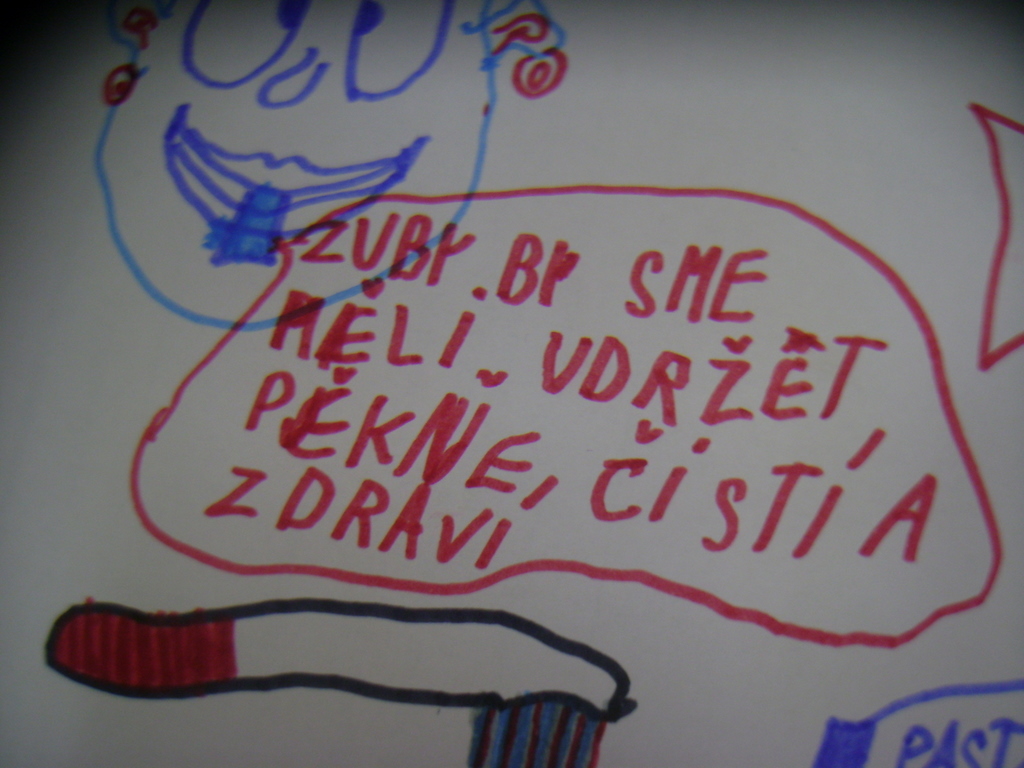 ZUBY.BY SME
MĚLI UDRŽĚT
PĚKŇE, ČISTÍ A
ZDRAVI
PAST